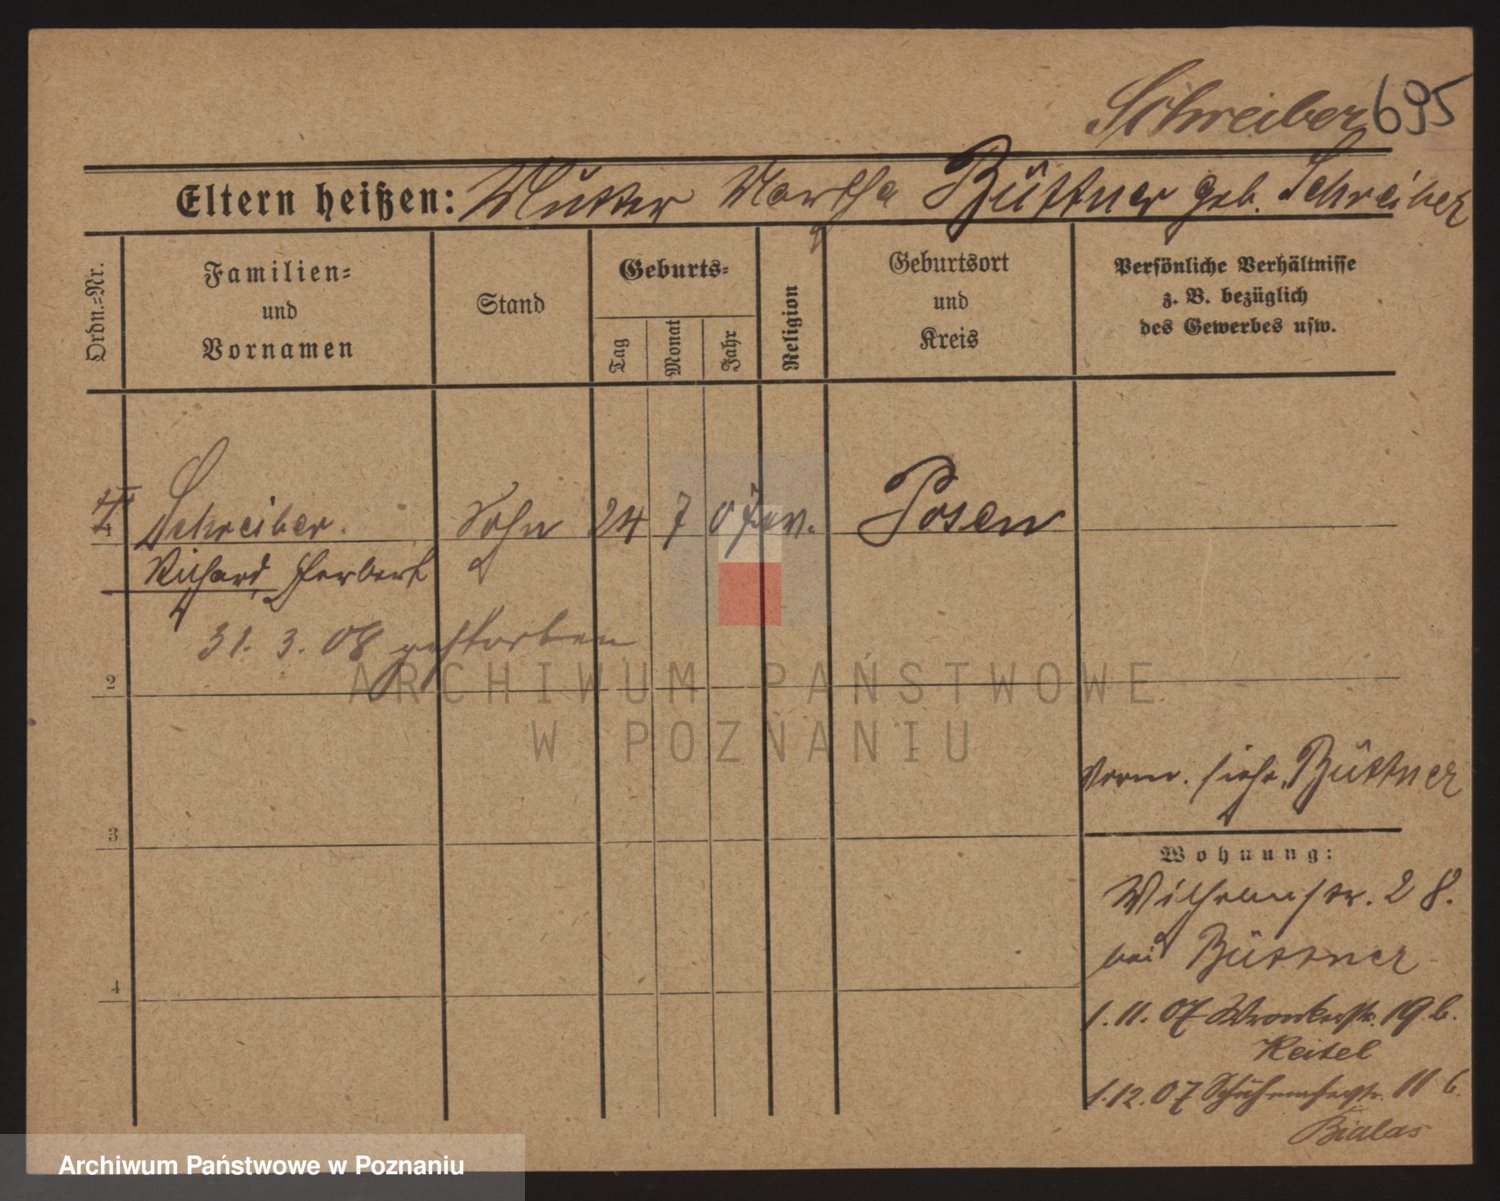 Schreiber 695
Eltern heißen: Mutter Martha Büttner geb. Schreiber
Ordn.=Nr.
Familien=
und
Vornamen
Stand
Geburts=
Tag
Monat
Jahr
Religion
Geburtsort
und
Kreis
Persönliche Verhältnisse
z. B. bezüglich
des Gewerbes usw.
Schreiber. Sohn 24 7 07 ev. Posen
Richard, Herbert
31. 3. 08 gestorben
2
3
4
Vorm. siehe Büttner
Wohnung:
Wilhelmstr. 28.
bei Büttner
1. 11. 07 Wronkerstr. 19 b.
Keitel
1. 12. 07 11 b.
Bialas
ARCHIWUM PAŃSTWOWE
W POZNANIU
Archiwum Państwowe w Poznaniu